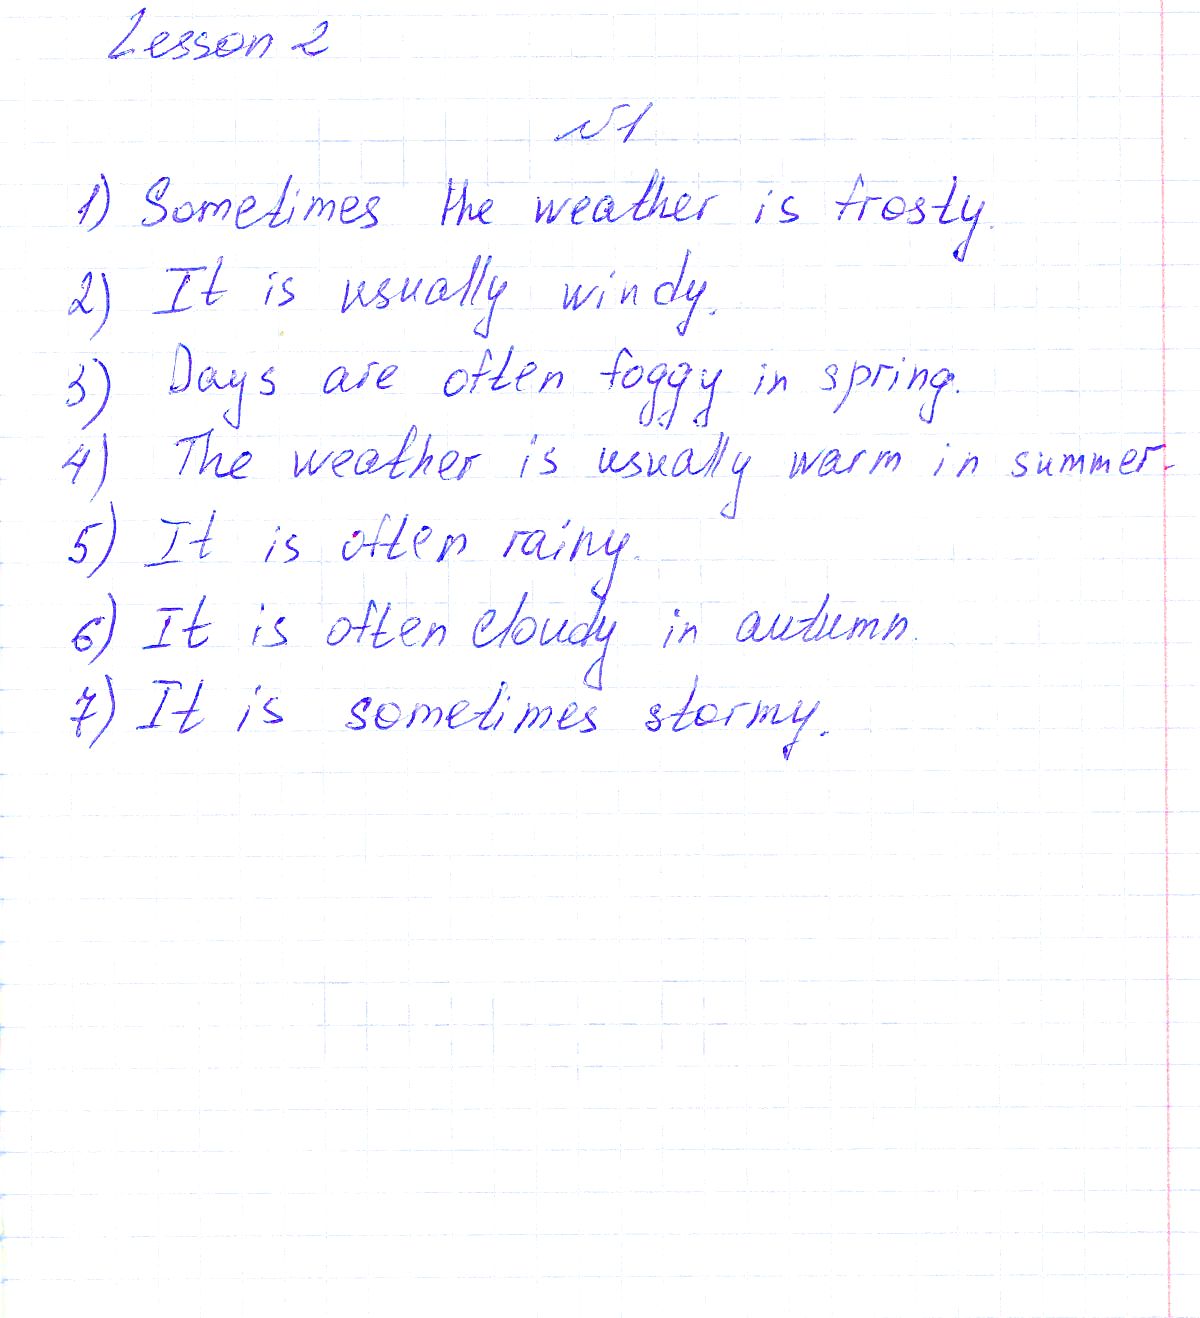 Lesson 2
№1
1) Sometimes the weather is frosty.
2) It is usually windy.
3) Days are often foggy in spring.
4) The weather is usually warm in summer.
5) It is often rainy.
6) It is often cloudy in autumn.
7) It is sometimes stormy.